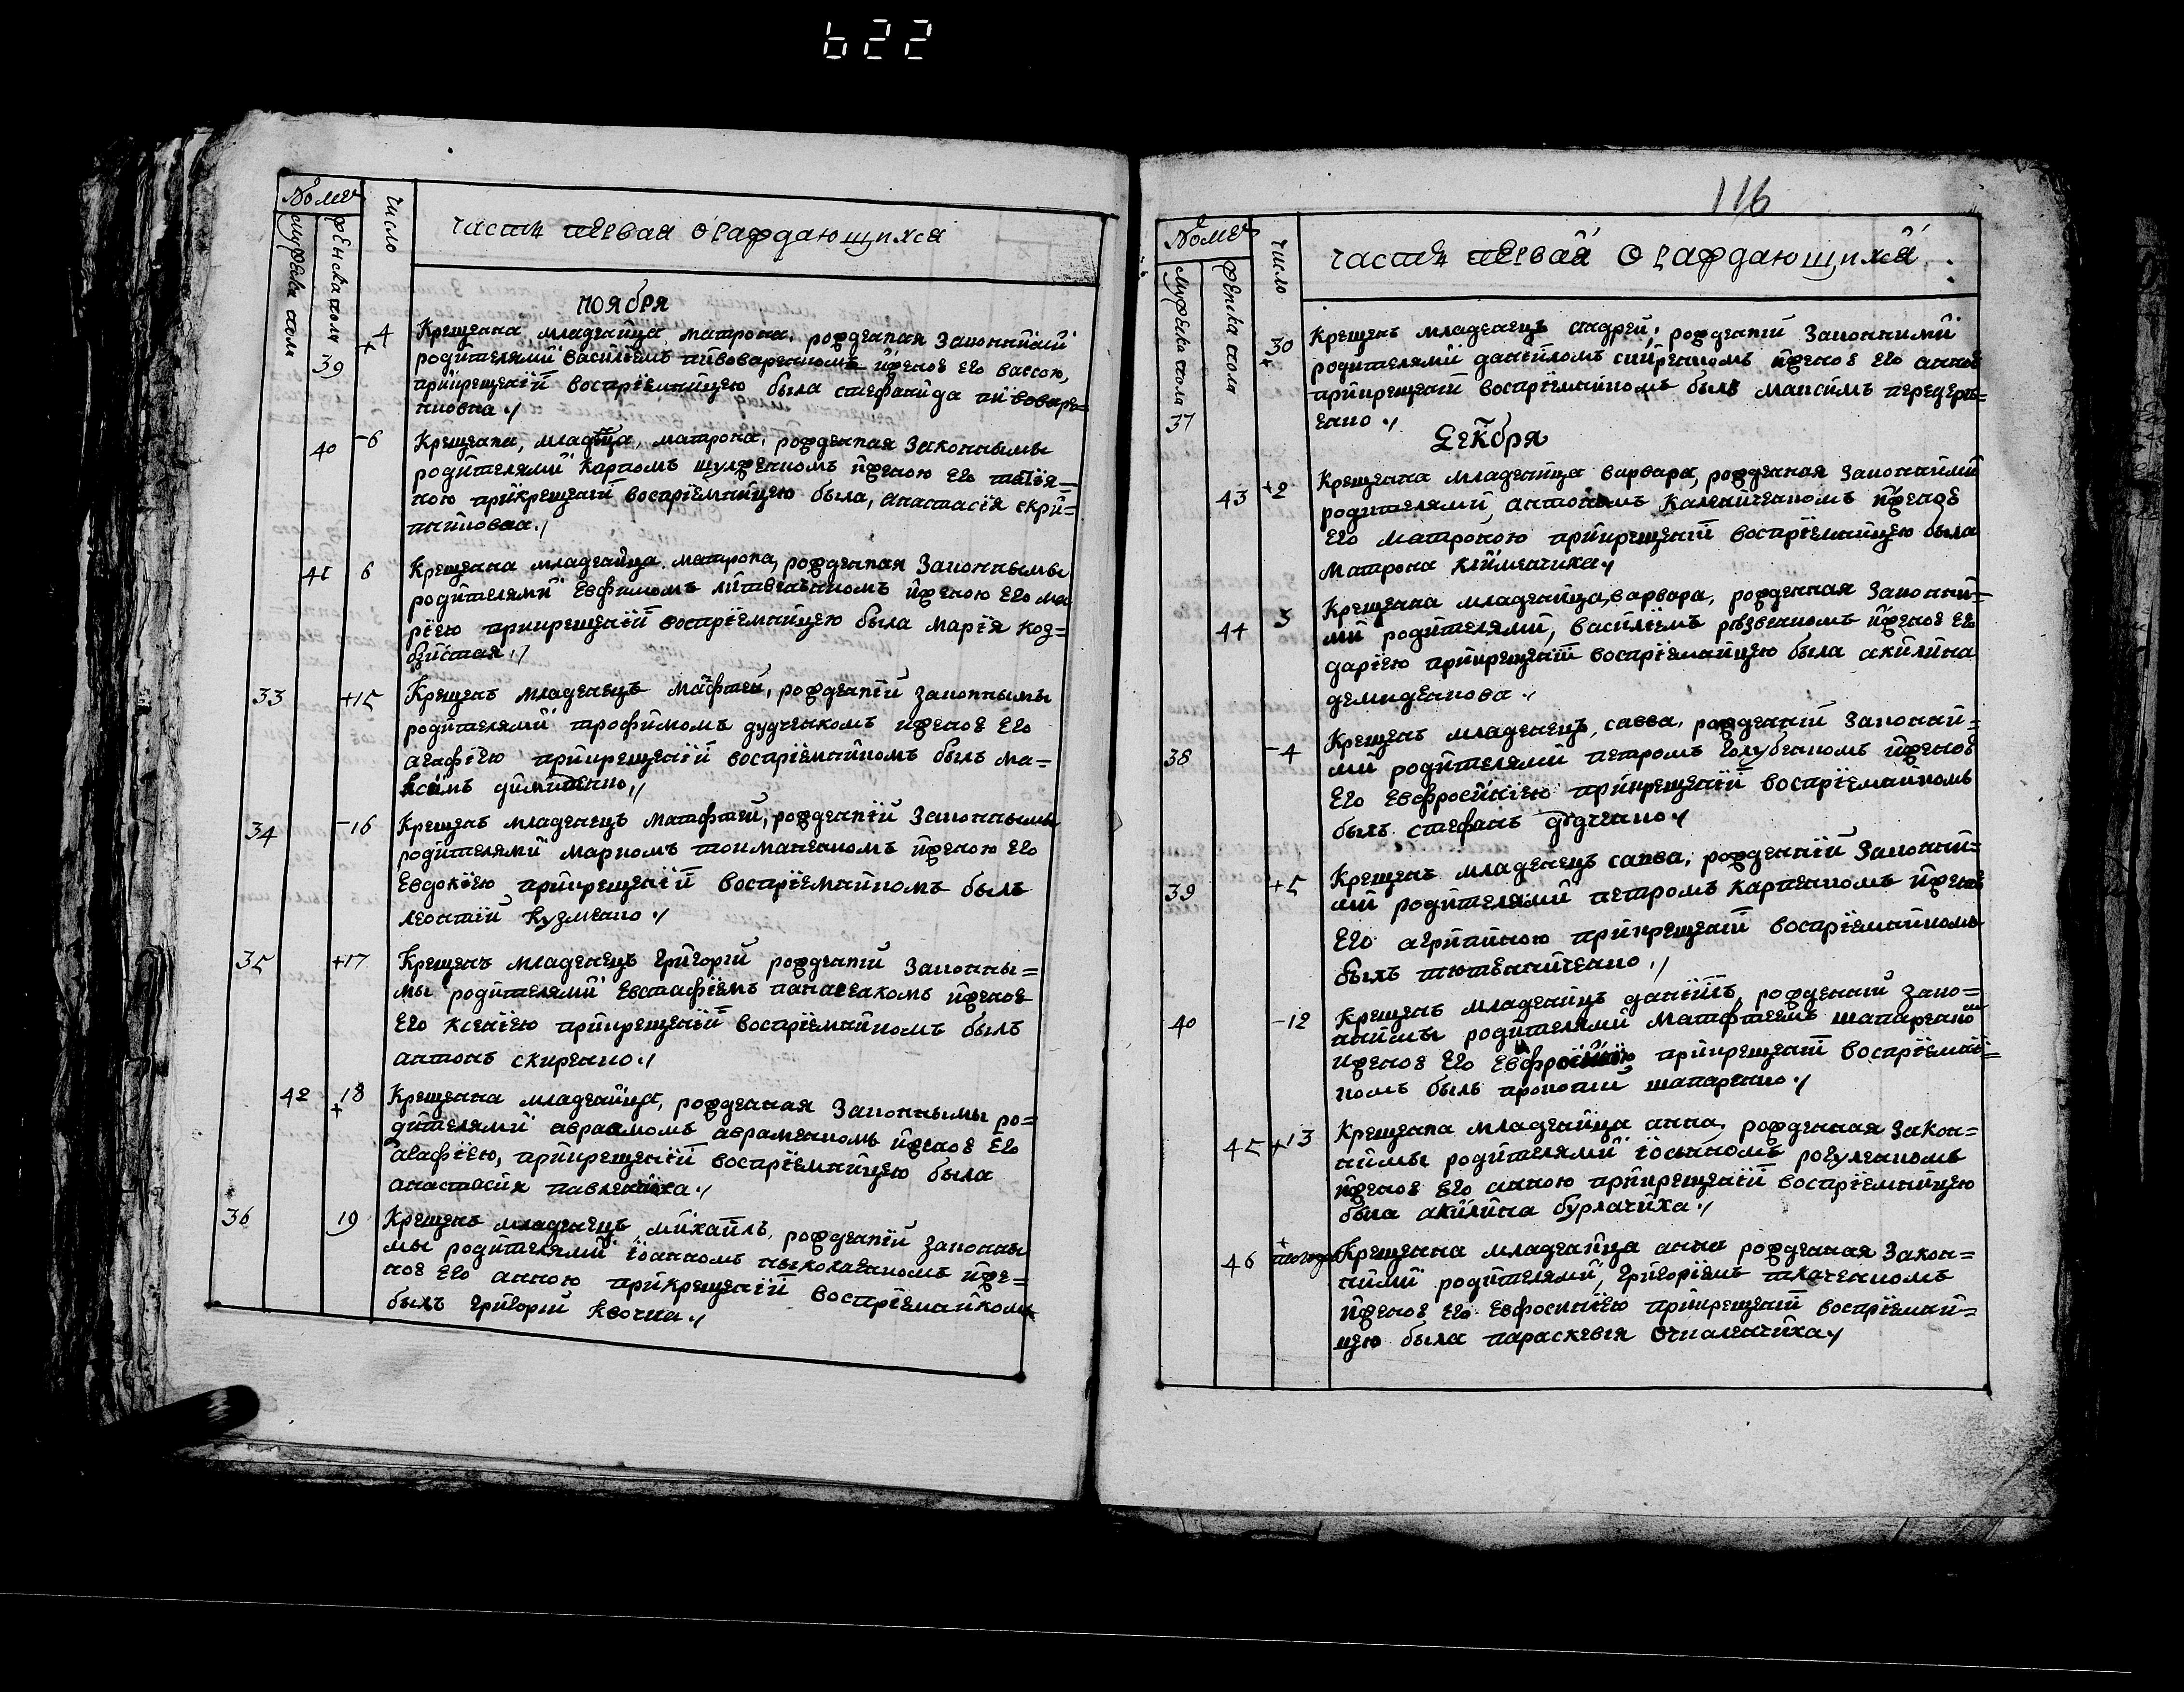 622
Номеръ
мужеска пола
женска пола
число
часть первая о раждающихся
ноября
39 +4 Крещена младеница матрона, рожденая законнїмї
родителями василїемъ пивоваренкомъ ижекоѣ его вассою,
прикрещенїи воспрїемницею была стефанида пивоваре=
нковна
40 -6 Крещена, младѣца, матрона, рожденая законнымы
родителями карпомъ шулженкомъ иженою его татїя=
ною прикрещенїи воспрїемницею была, анастасїя скри=
41 6 Крещена младеница матрона, рожденая законнымы
родителями евфимомъ литвененкомъ иженою его ма
рїею прикрещенїи воспрїемницею была марїя коз=
33 +15 Крещенъ младенецъ матфей, рожденїй законнымы
родителями трофимомъ дудченкомъ иженоѣ его
агафїею прикрещенїи воспрїемникомъ былъ ма=
ксимъ
34 -16 Крещенъ младенецъ матфтей, рожденїй законнымы
родителями маркомъ токманенкомъ иженою его
евдокїею прикрещенїи воспрїемникомъ былъ
леонтїй кузменко
35 +17 Крещенъ младенецъ григорїй рожденїй законны=
мы родителями евстафїемъ панасенкомъ иженоѣ
его ксенїею прикрещенїи воспрїемникомъ былъ
антонъ скиренко
42 +18 Крещена младеница, рожденая законнымы ро=
дителями авраамомъ авраменкомъ иженоѣ его
агафїею, прикрещенїи воспрїемницею была
анастасия павленкова
36 19 Крещенъ младенецъ михаилъ, рожденїй законны
мы родителями їоанномъ иже=
ноѣ его анною прикрещенїи воспрїемникомъ
былъ григорїй квочка
116
Номеръ
мужеска пола
женска пола
число
часть первая о раждающихся
37 +30 Крещенъ младенецъ андрей, рожденїй законними
родителями данїиломъ скиренкомъ иженоѣ его анноѣ
прикрещенїи воспрїемникомъ былъ максимъ передерї=
енко
декбря
43 +2 Крещена младеница варвара, рожденая законними
родителями, антономъ калениченкомъ иженоѣ
его матроною прикрещенїи воспрїемницею была
матрона клименчиха
44 3 Крещена младеница, варвара, рожденая законни=
ми родителями, василїемъ рѣзвенкомъ иженоѣ его
дарїею прикрещенїи воспрїемницею была акилина
демиденкова
38 -4 Крещенъ младенецъ, савва, рожденїй законни=
ми родителями петромъ голубенкомъ иженоѣ
его евфросинїею прикрещенїи воспрїемникомъ
былъ стефанъ дѣдченко
39 +5 Крещенъ младенецъ савва, рожденїй законни=
ми родителями петромъ карпенкомъ иженоѣ
его агрипиною прикрещенїи воспрїемникомъ
былъ
40 -12 Крещенъ младенецъ данїилъ, рожденїй зако=
ннимы родителями матфтеемъ шапаренкомъ
иженоѣ его евфросинїею прикрещенїи воспрїемни=
комъ былъ прокопїй шапаренко
45 +13 Крещена младеница анна, рожденая закон=
нимы родителями їосипомъ рогуленкомъ
иженоѣ его анною прикрещенїи воспрїемницею
была акилина бурлачиха
46 + тогожъ Крещена младеница анна рожденая закон=
ними родителями, григорїемъ ткаченкомъ
иженоѣ его евфросинїею прикрещенїи воспрїемни=
цею была параскевїя